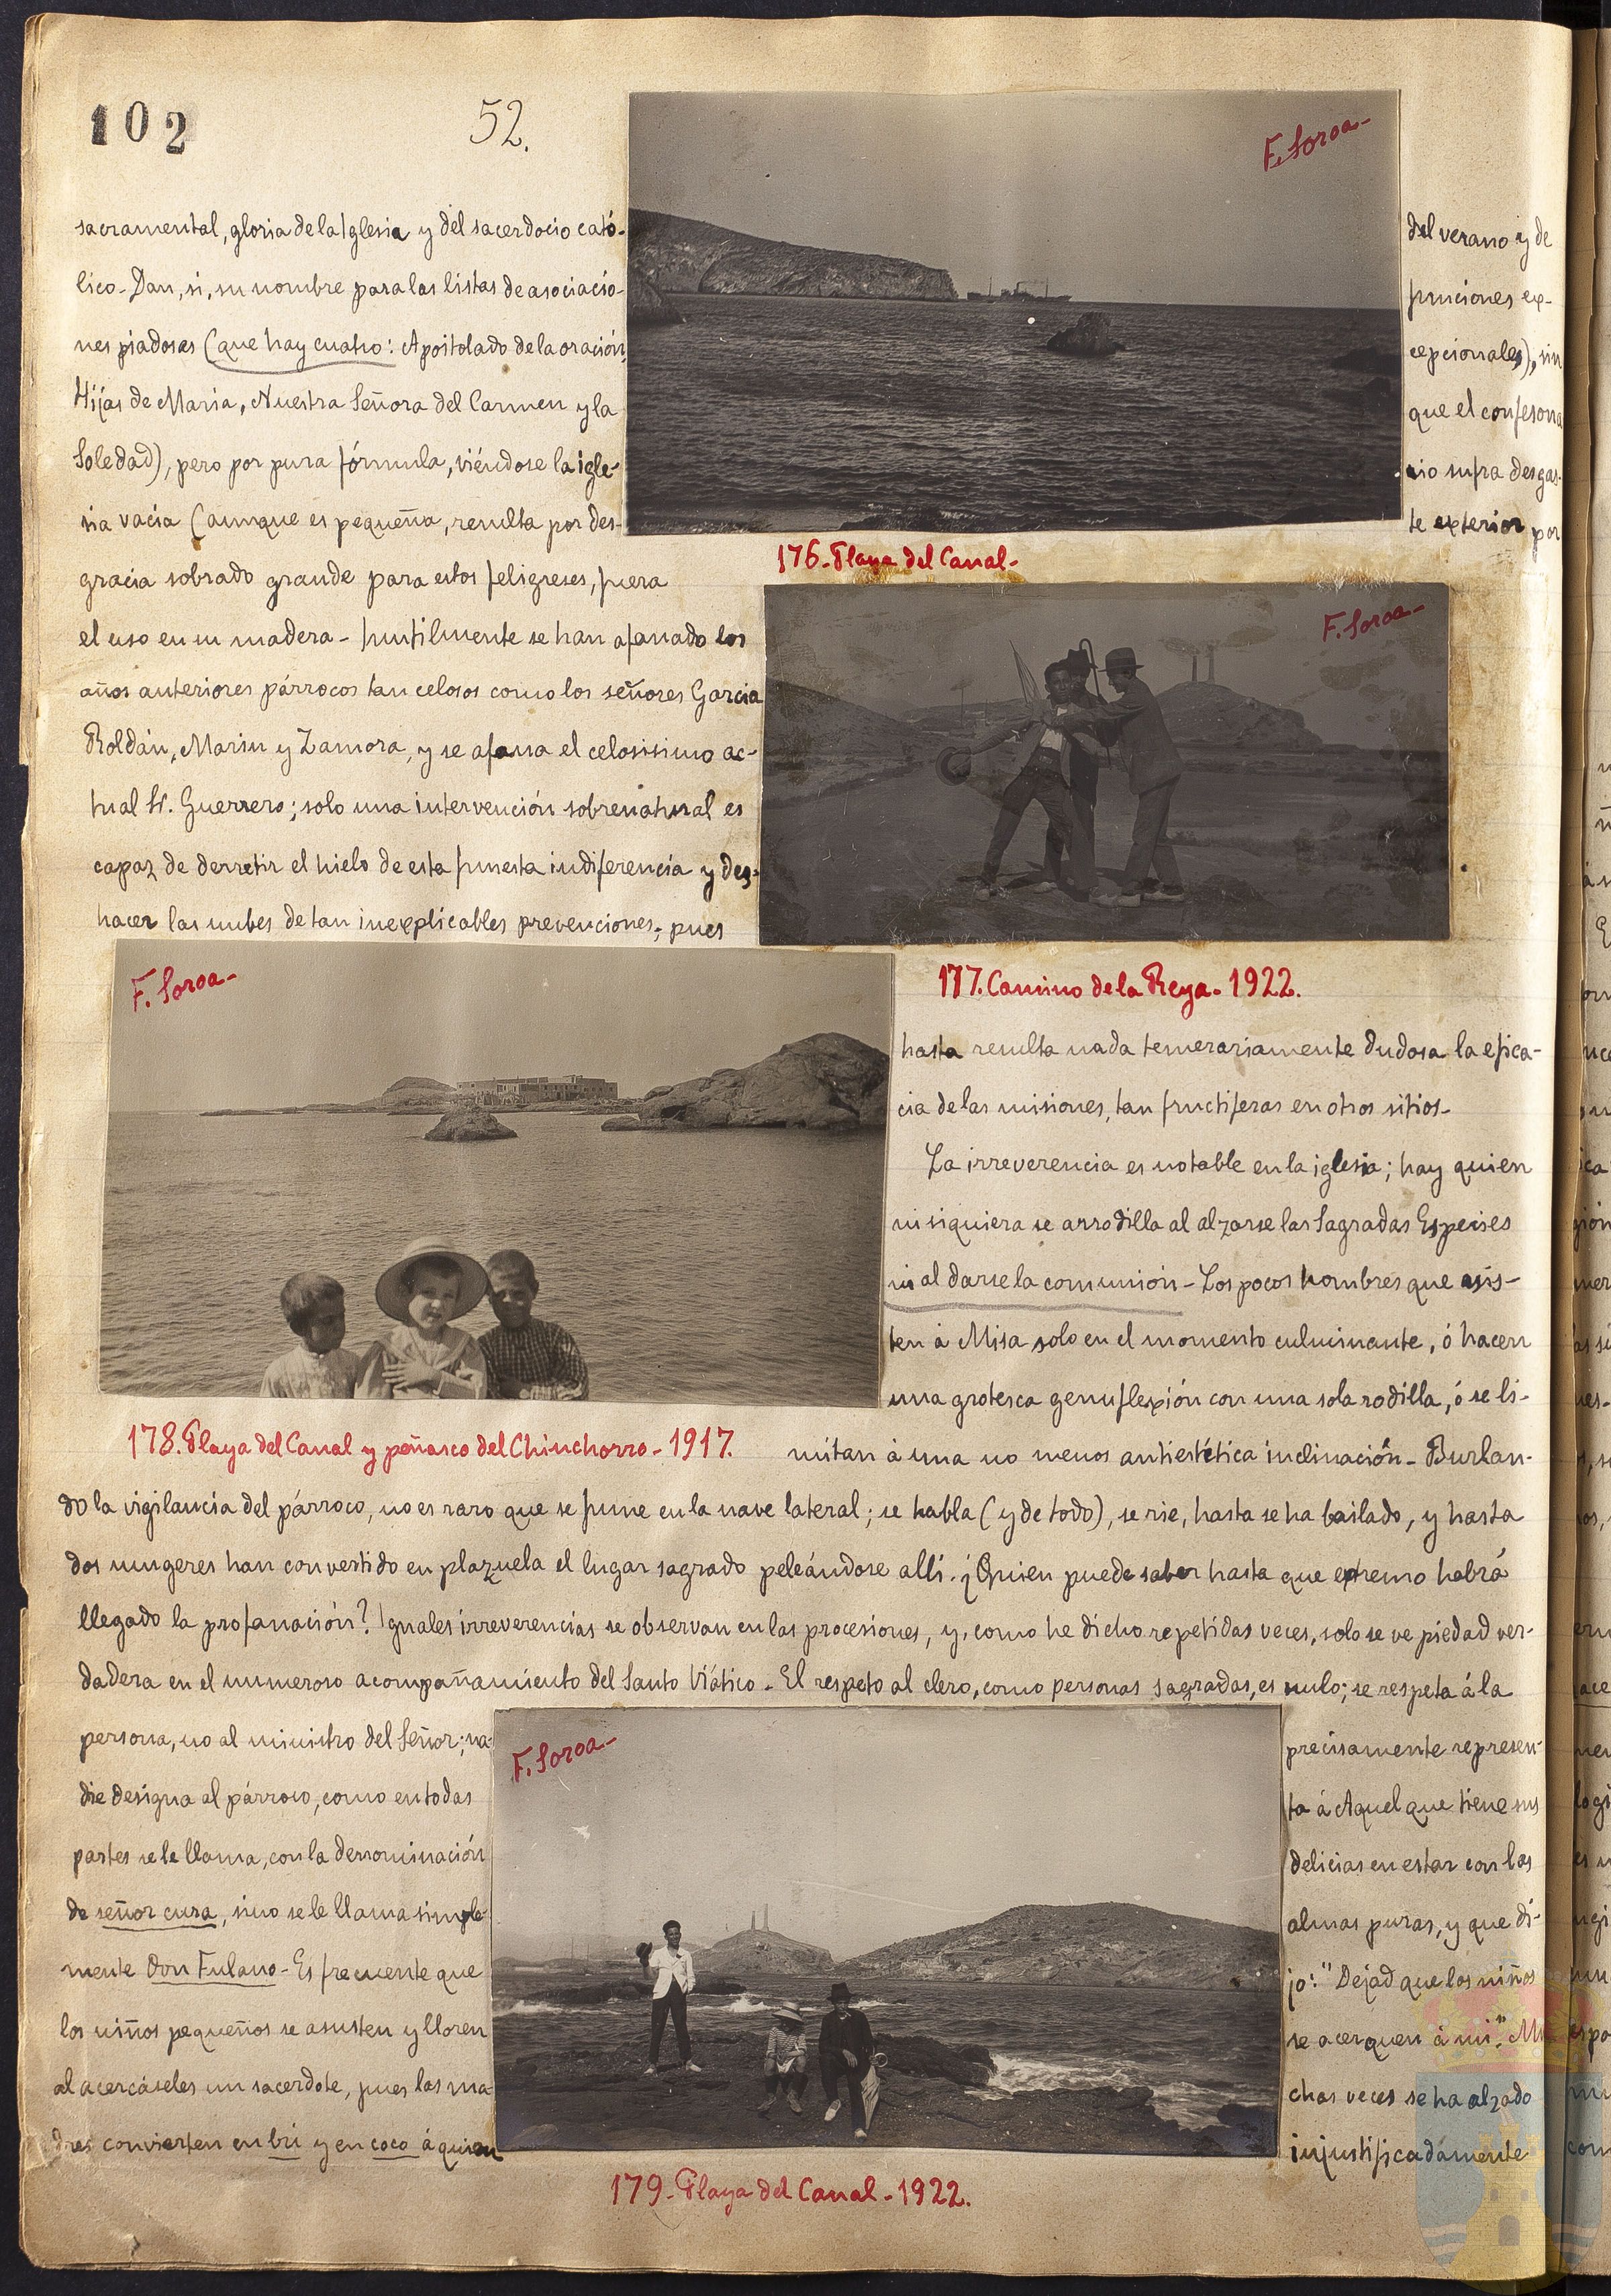 102
52.
F. Soroa-
sacramental, gloria de la Iglesia y del sacerdocio cató-
lico - Dan, si, su nombre para las listas de asociacio-
nes piadosas (que hay cuatro: Apostolado de la oración,
Hijas de Maria, Nuestra Señora del Carmen y la
Soledad), pero por pura fórmula, viéndose la igle-
sia vacia (aunque es pequeña, resulta por des-
gracia sobrado grande para estos feligreses, fuera
del verano y de
funciones ex-
cepcionales), sin
que el confesona
rio sufra desgas-
te exterior por
176 - Playa del Canal -
F. Soroa -
el uso en su madera - Inutilmente se han afanado los
años anteriores párrocos tan celosos como los señores Garcia
Roldán, Marin y Zamora, y se afana el celosisimo ac-
tual Sr. Guerrero; solo una intervención sobrenatural es
capaz de derretir el hielo de esta funesta indiferencia y des-
hacer las nubes de tan inexplicables prevenciones; pues
177. Camino de la Reya - 1922.
F. Soroa -
hasta resulta nada temerariamente dudosa la efica-
cia de las misiones, tan fructiferas en otros sitios -
La irreverencia es notable en la iglesia; hay quien
ni siquiera se arrodilla al alzarse las Sagradas Especies
ni al darse la comunión - Los pocos hombres que asis-
ten á Misa solo en el momento culminante, ó hacen
una grotesca genuflexión con una sola rodilla, ó se li-
178. Playa del Canal y peñasco del Chinchorro - 1917.
mitan á una no menos antiestética inclinación - Burlan-
do la vigilancia del párroco, no es raro que se fume en la nave lateral; se habla (y de todo), se rie, hasta se ha bailado, y hasta
dos mugeres han convertido en plazuela el lugar sagrado peleándose alli. ¿Quien puede saber hasta que extremo habrá
llegado la profanación? Iguales irreverencias se observan en las procesiones, y, como he dicho repetidas veces, solo se ve piedad ver-
dadera en el numeroso acompañamiento del Santo Viático - El respeto al clero, como personas sagradas, es nulo; se respeta á la
persona, no al ministro del Señor; na-
die designa al párroco, como en todas
partes se le llama, con la denominación
de señor cura, sino se le llama simple-
mente Don Fulano - Es frecuente que
los niños pequeños se asusten y lloren
al acercárseles un sacerdote, pues las ma-
dres convierten en bú y en coco á quien
F. Soroa -
precisamente represen-
ta á Aquel que tiene sus
delicias en estar con las
almas puras, y que di-
jo: "Dejad que los niños
se acerquen á mi". Mu
chas veces se ha alzado
injustificadamente
179 - Playa del Canal - 1922.